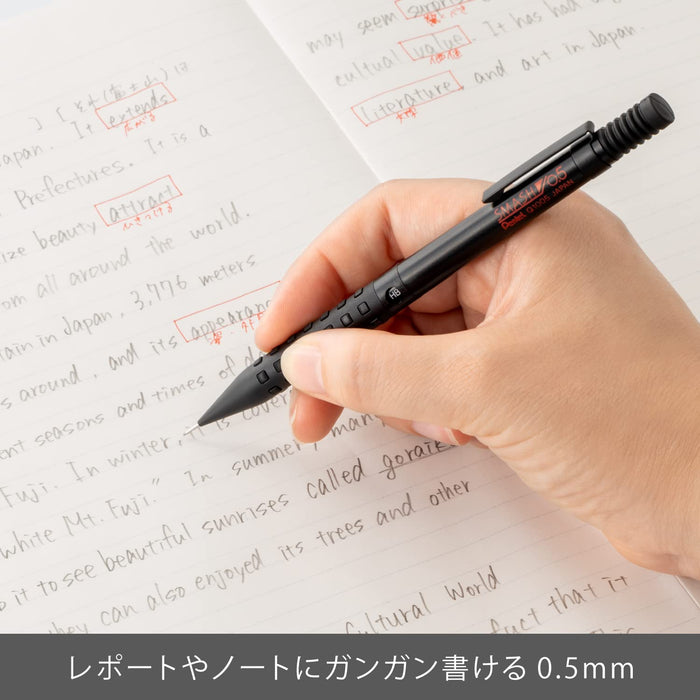 may seem surpris
cultural value
literature, and art in Japan.
It has had
] [ は
Japan. It extends
広がる
Prefectures. It is a
ize beauty attract
ひきつける
from all around the world.
tain in Japan, 3,776 meters
, and its appearance
s around
ent seasons and times of d
Fuji. In winter, it is cover
white Mt. Fuji." In summer, man
o it to see beautiful sunrises called goraik
they can also enjoyed its trees and other
Cultural World
fact that it
SMASH 0.5
Pentel Q1005 JAPAN
HB
レポートやノートにガンガン書ける 0.5mm